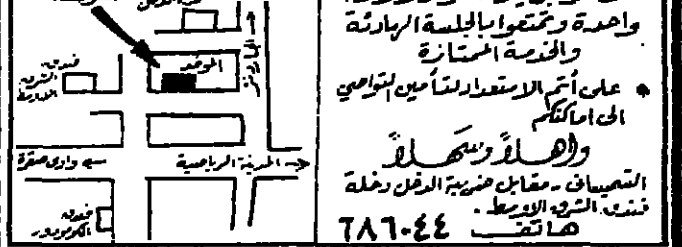 واحدة وتمتعوا بالجلسة الهادئة
والخدمة الممتازة
على أتم الاستعداد لتأمين التواصي
الى اماكنكم
وأهلاً وسهلاً
الشميساني - مقابل ضريبة الدخل دخلة
فندق الشرق الاوسط.
هاتف ٦٨٦٠٤٤
الموقد
فندق
الشرق
الاوسط
المدينة الرياضية
وادي صقرة
فندق
الكومودور